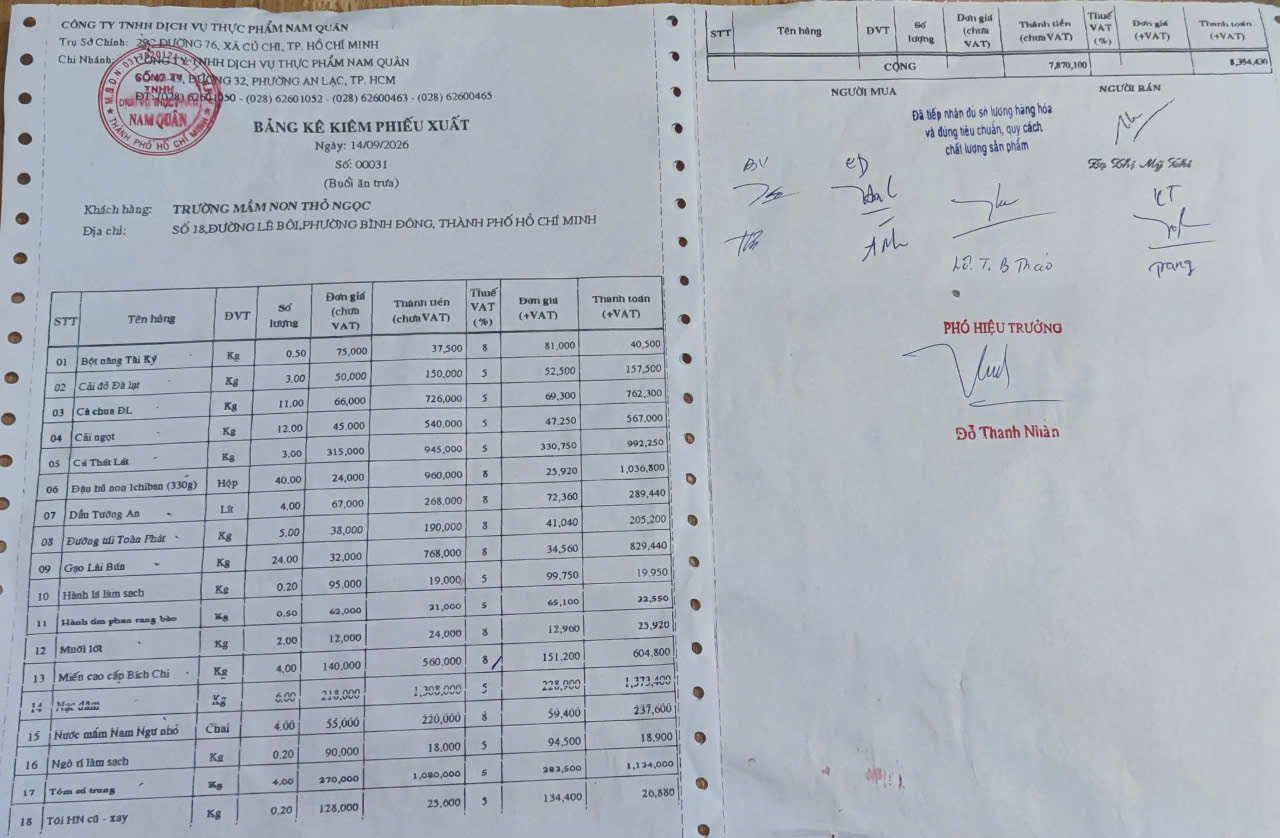 CÔNG TY TNHH DỊCH VỤ THỰC PHẨM NAM QUÂN
Trụ Sở Chính: 292 ĐƯỜNG 76, XÃ CỦ CHI, TP. HỒ CHÍ MINH
Chi Nhánh: CÔNG TY TNHH DỊCH VỤ THỰC PHẨM NAM QUÂN
SỐ 49, ĐƯỜNG 32, PHƯỜNG AN LẠC, TP. HCM
ĐT: (028) 62601050 - (028) 62601052 - (028) 62600463 - (028) 62600465
CÔNG TY
TNHH
DỊCH VỤ THỰC PHẨM
NAM QUÂN
THÀNH PHỐ HỒ CHÍ MINH
BẢNG KÊ KIÊM PHIẾU XUẤT
Ngày: 14/09/2026
Số: 00031
(Buổi ăn trưa)
Khách hàng: TRƯỜNG MẦM NON THỎ NGỌC
Địa chỉ: SỐ 18,ĐƯỜNG LÊ BÔI,PHƯỜNG BÌNH ĐÔNG, THÀNH PHỐ HỒ CHÍ MINH
STT Tên hàng ĐVT Số lượng Đơn giá (chưa VAT) Thành tiền (chưa VAT) Thuế VAT (%) Đơn giá (+VAT) Thanh toán (+VAT)
01 Bột năng Tài Ký Kg 0.50 75,000 37,500 8 81,000 40,500
02 Cải đỏ Đà lạt Kg 3.00 50,000 150,000 5 52,500 157,500
03 Cà chua ĐL Kg 11.00 66,000 726,000 5 69,300 762,300
04 Cải ngọt Kg 12.00 45,000 540,000 5 47,250 567,000
05 Cá Thát Lát Kg 3.00 315,000 945,000 5 330,750 992,250
06 Đậu hủ non Ichiban (330g) Hộp 40.00 24,000 960,000 8 25,920 1,036,800
07 Dầu Tường An Lít 4.00 67,000 268,000 8 72,360 289,440
08 Đường túi Toàn Phát Kg 5.00 38,000 190,000 8 41,040 205,200
09 Gạo Lài Bún Kg 24.00 32,000 768,000 8 34,560 829,440
10 Hành lá làm sạch Kg 0.20 95,000 19,000 5 99,750 19,950
11 Hành tím phan rang bào Kg 0.50 62,000 31,000 5 65,100 32,550
12 Muối iốt Kg 2.00 12,000 24,000 8 12,960 25,920
13 Miến cao cấp Bích Chi Kg 4.00 140,000 560,000 8 151,200 604,800
14 Nạc dăm Kg 6.00 218,000 1,308,000 5 228,900 1,373,400
15 Nước mắm Nam Ngư nhỏ Chai 4.00 55,000 220,000 8 59,400 237,600
16 Ngò rí làm sạch Kg 0.20 90,000 18,000 5 94,500 18,900
17 Tôm sú trung Kg 4.00 270,000 1,080,000 5 283,500 1,134,000
18 Tỏi HN củ - xay Kg 0.20 128,000 25,600 5 134,400 26,880
STT Tên hàng ĐVT Số lượng Đơn giá (chưa VAT) Thành tiền (chưa VAT) Thuế VAT (%) Đơn giá (+VAT) Thanh toán (+VAT)
CỘNG 7,870,100 8,354,430
NGƯỜI MUA NGƯỜI BÁN
Đã tiếp nhận đủ số lượng hàng hóa
và đúng tiêu chuẩn, quy cách
chất lượng sản phẩm
BV CD KT
Anh Trang
PHÓ HIỆU TRƯỞNG
Đỗ Thanh Nhàn